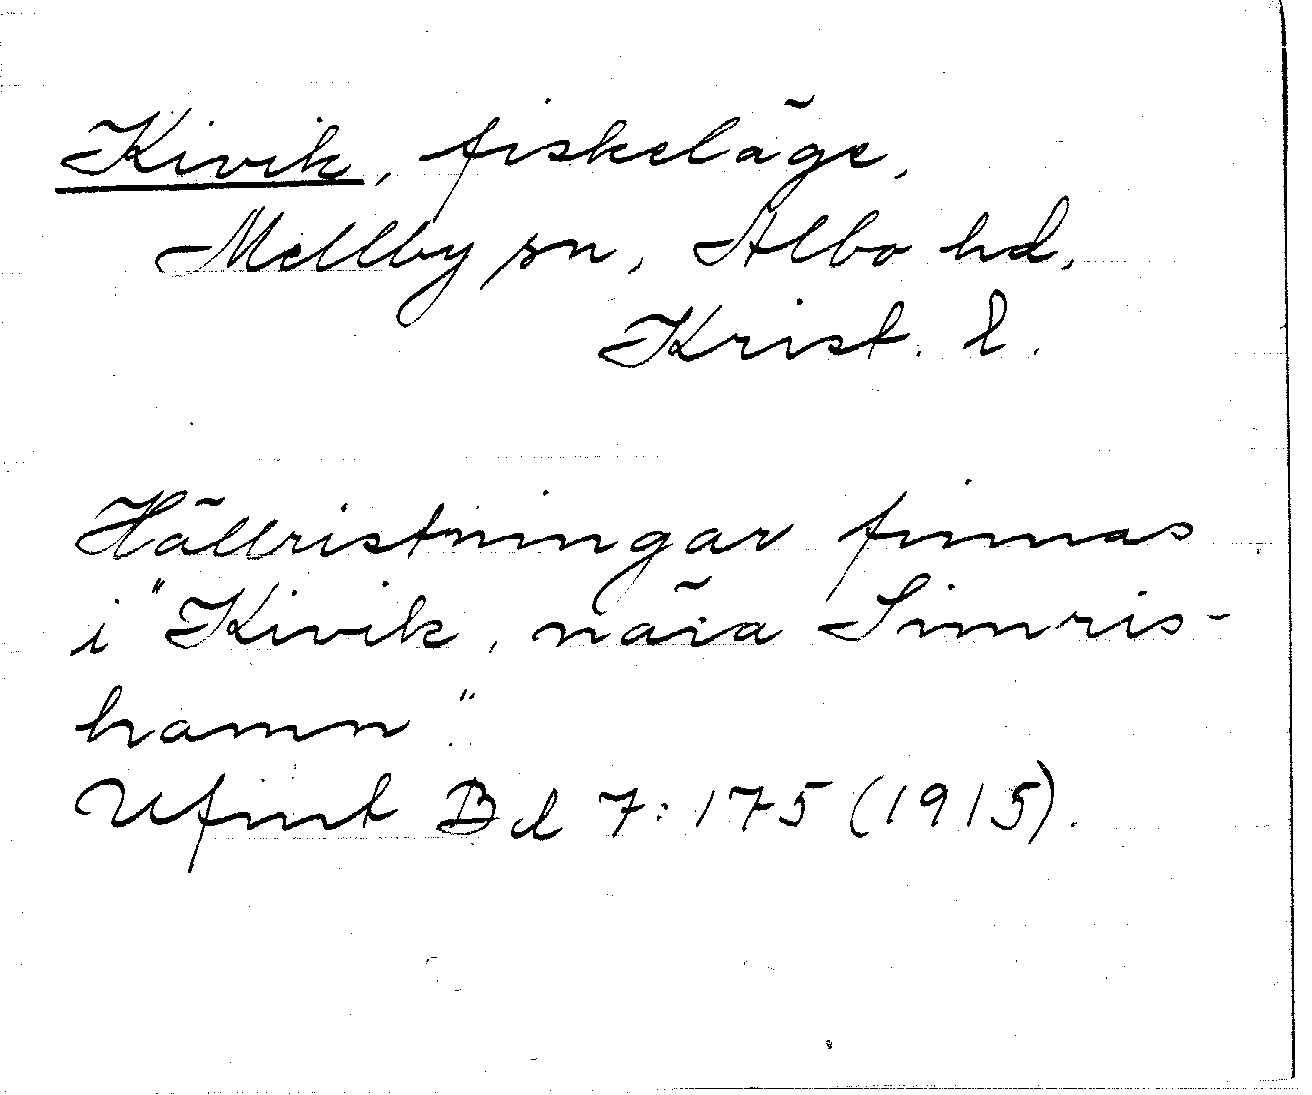 Kivik, fiskeläge,
Mellby sn, Albo hd,
Krist. l.
Hällristningar finnas
i "Kivik, nära Simris-
hamn".
Ufmt Bd 7:175 (1915).